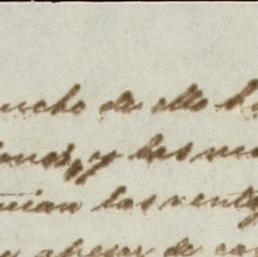 ucho de ello h
y las
nian las venta
y apesar de ca